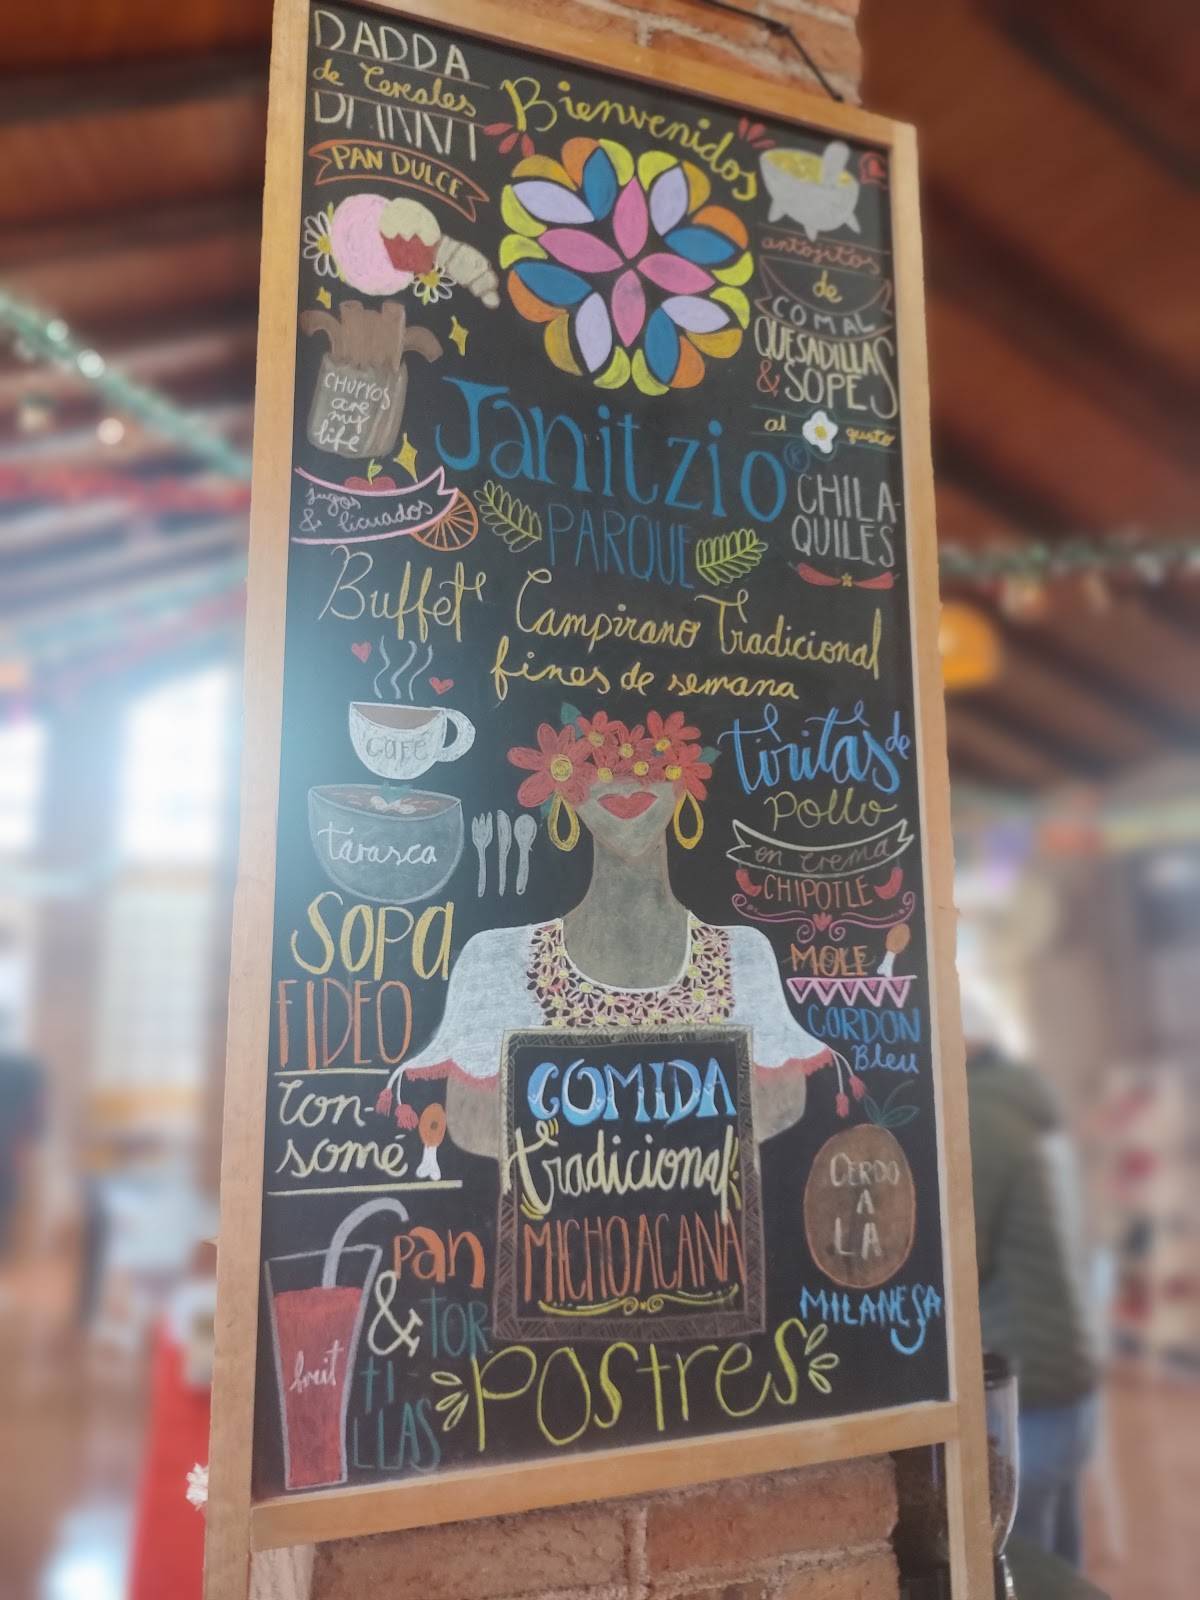 BARRA
de Cereales
PAN DULCE
CHURROS
are
my
life
Jugos
& licuados
Bienvenidos
antojitos
de
COMAL
QUESADILLAS
& SOPES
al gusto
CHILA-
QUILES
Janitzio®
PARQUE
Buffet Campirano Tradicional
fines de semana
CAFÉ
tarasca
SOPA
FIDEO
Con-
somé
fruit
pan
& TOR
TI-
LLAS
tiritas de
pollo
en crema
CHIPOTLE
MOLE
CORDON
Bleu
CERDO
A
LA
MILANESA
COMIDA
tradicional
MICHOACANA
postres